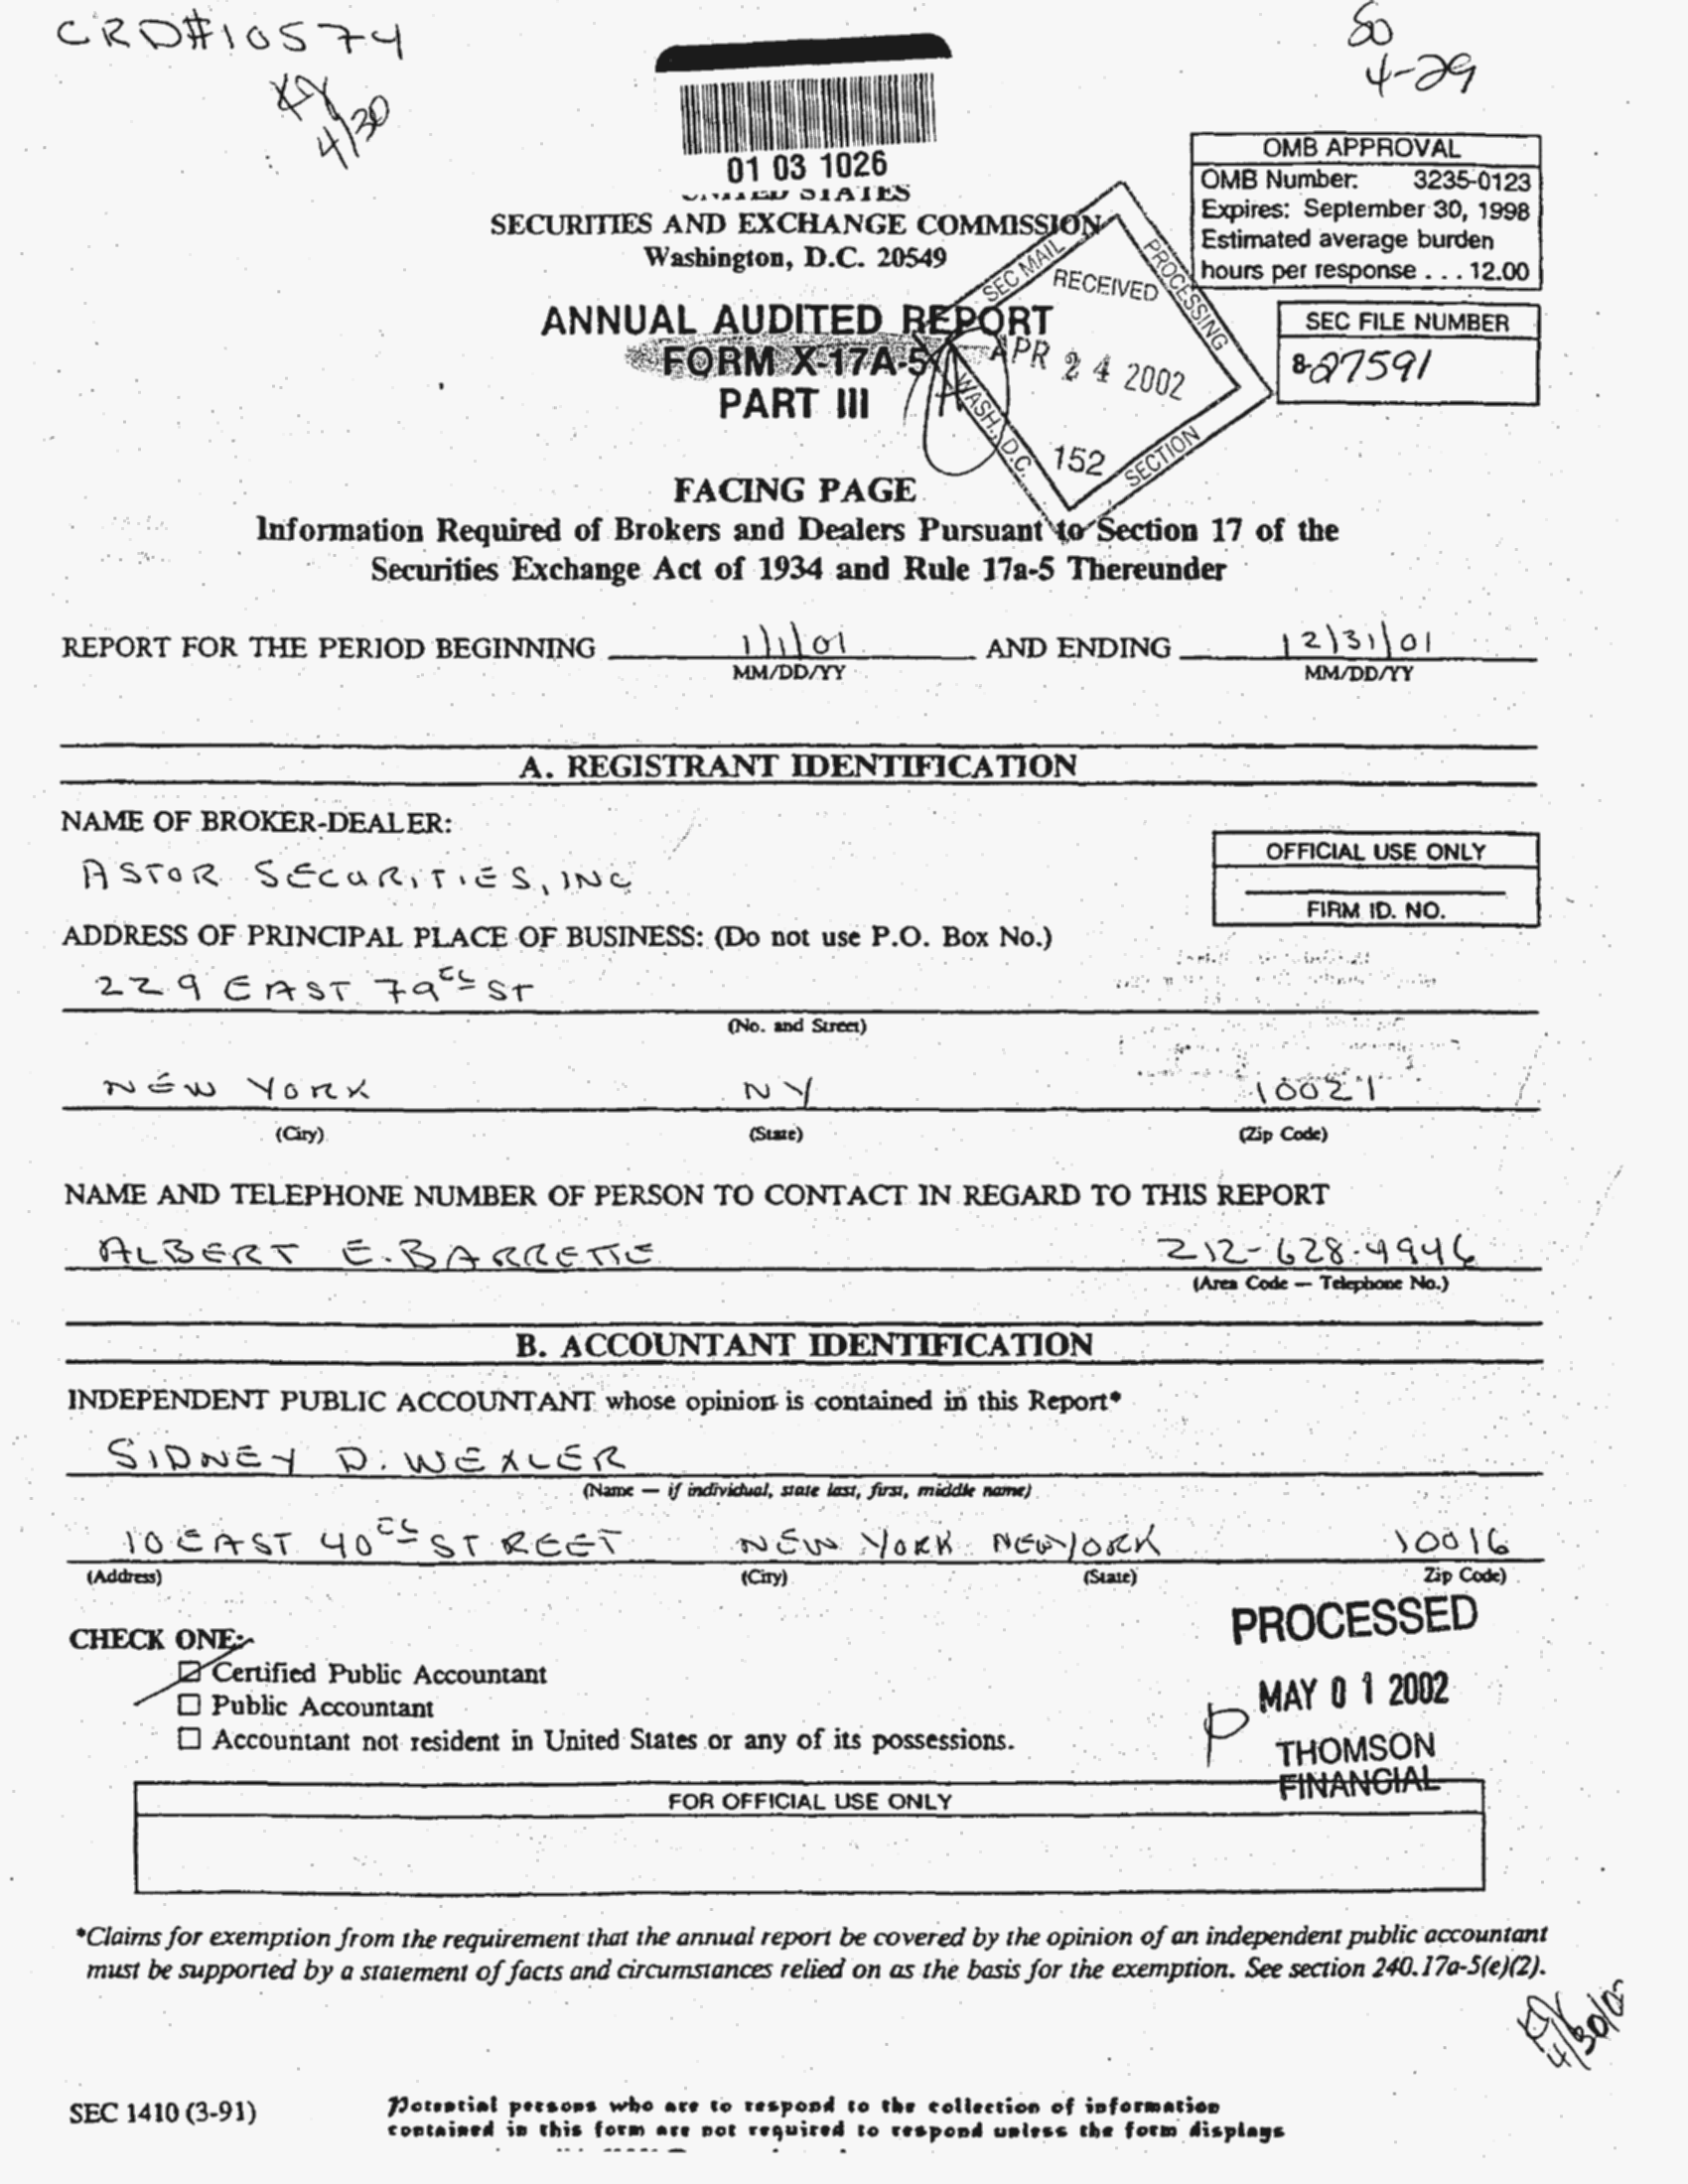 CRD#10574
4/30
80
4-29
01 03 1026
UNITED STATES
SECURITIES AND EXCHANGE COMMISSION
Washington, D.C. 20549
ANNUAL AUDITED REPORT
FORM X-17A-5
PART III
SEC MAIL PROCESSING
RECEIVED
APR 24 2002
152
WASH., D.C. SECTION
OMB APPROVAL
OMB Number: 3235-0123
Expires: September 30, 1998
Estimated average burden
hours per response . . . 12.00
SEC FILE NUMBER
8-27591
FACING PAGE
Information Required of Brokers and Dealers Pursuant to Section 17 of the
Securities Exchange Act of 1934 and Rule 17a-5 Thereunder
REPORT FOR THE PERIOD BEGINNING 1/1/01 AND ENDING 12/31/01
MM/DD/YY MM/DD/YY
A. REGISTRANT IDENTIFICATION
NAME OF BROKER-DEALER:
ASTOR SECURITIES, INC
OFFICIAL USE ONLY
FIRM ID. NO.
ADDRESS OF PRINCIPAL PLACE OF BUSINESS: (Do not use P.O. Box No.)
229 EAST 79 ST
(No. and Street)
NEW YORK NY 10021
(City) (State) (Zip Code)
NAME AND TELEPHONE NUMBER OF PERSON TO CONTACT IN REGARD TO THIS REPORT
ALBERT E. BARRETTE 212-628-4946
(Area Code — Telephone No.)
B. ACCOUNTANT IDENTIFICATION
INDEPENDENT PUBLIC ACCOUNTANT whose opinion is contained in this Report*
SIDNEY D. WEXLER
(Name — if individual, state last, first, middle name)
10 EAST 40 STREET NEW YORK NEW YORK 10016
(Address) (City) (State) Zip Code)
CHECK ONE:
☑ Certified Public Accountant
☐ Public Accountant
☐ Accountant not resident in United States or any of its possessions.
PROCESSED
MAY 01 2002
P
THOMSON
FINANCIAL
FOR OFFICIAL USE ONLY
*Claims for exemption from the requirement that the annual report be covered by the opinion of an independent public accountant
must be supported by a statement of facts and circumstances relied on as the basis for the exemption. See section 240.17a-5(e)(2).
4/30/02
SEC 1410 (3-91)
Potential persons who are to respond to the collection of information
contained in this form are not required to respond unless the form displays